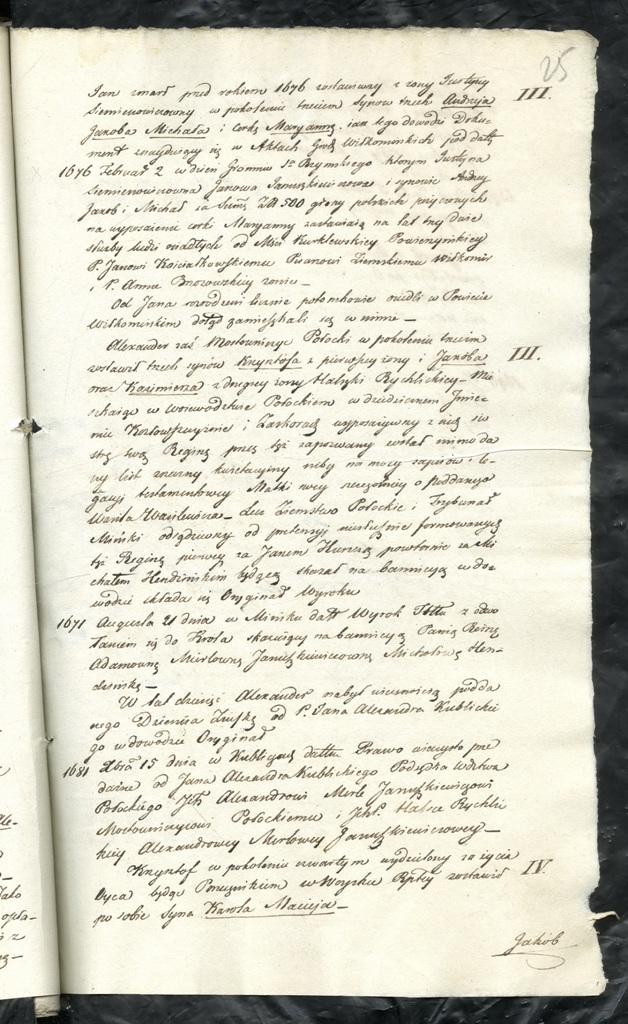 25
Jan zmarł przed rokiem 1676 zostawiwszy z żony Justyny III.
Siemienowiczowny w pokoleniu trzecim synow trzech Andrzeja
Jakoba Michała i corkę Maryannę. iak tego dowodzi Doku-
ment znayduiący się w Aktach Grodz Wiłkomirskich pod datą
1676 Februar 2 w dzień Gromnic Sw. Rzymskiego ktorym Justyna
Siemienowiczowna Janowa Januszkiewiczowa i synowie Andrzey
Jakob i Michał za Summę Zł 500 groszy polskich pożyczonych
na wyposażenie corki Maryanny zastawiaią na lat trzy dwie
służby ludzi osiadłych od Mści Kurklewskiey Powiewyńskiey
P. Janowi Kościałkowskiemu Pisarzowi Ziemskiemu Wiłkomir
i P. Annie Brzozowskiey żonie —
Od Jana rozrodzeni licznie potomkowie osiedli w Powiecie
Wiłkomirskim dotąd zamieszkali są w nimże —
Alexander zaś Mostowniczy Połocki w pokoleniu trzecim
zostawił trzech synow Krzysztofa z pierwszey żony i Jakoba III.
oraz Kazimierza z drugiey żony Halszki Rychlickiey — Mie
szkaiąc w Woiewodztwie Połockiem w dziedzicznem Imie-
niu Kozłowszczyznie i Zaskorach wyposażywszy z nich sio
strę swoię Reginę przez tęż zapozwany został mimo da
ny list znaczny kwietacyiny niby na mocy zapisow i le-
gacyi testamentowey Matki swey szczegolniey o poddanego
Wasila Wasilewicza — Lecz Ziemstwo Połockie i Trybunał
Miński odsądziwszy od pretensyi niesłusznie formowanych
też Reginę pierwey za Janem Hurczą powtornie za Mi-
chałem Hendzińskim będącą skazał na bannicyą w do-
wodzie składa się Oryginał Wyroku
1671 Augusta 21 dnia w Mińsku datt Wyrok Tłłu z odwo
łaniem się do Krola skazuiący na bannicyą Panią Reinę
Adamownę Mierlownę Januszkiewiczownę Michałową Hen-
dzińską —
W lat dziesięć Alexander nabył wiecznością podda
nego Dzienisa Ziuskę od P. Jana Alexandra Kublickie
go w dowodzie Oryginał
1681 Xbra 15 dnia w Kubliczach dattu Prawo wieczysto prze
dażne od Jana Alexandra Kublickiego Podsędka Wdztwa
Połockiego Jch Alexandrowi Merle Januszkiewiczowi
Mostowniczemu Połockiemu i Jchł. Halsce Rychli
ckiey Alexandrowey Merlowey Januszkiewiczowey —
Krzysztof w pokoleniu czwartym wydzielony za życia IV.
Oyca będąc Porucznikiem w Woysku Rptey zostawił
po sobie syna Karola Macieja —
Jakób